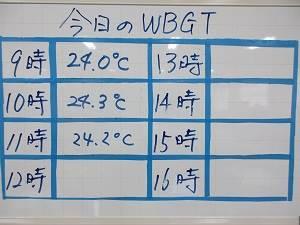 今日のWBGT
9時 24.0℃ 13時
10時 24.3℃ 14時
11時 24.2℃ 15時
12時 16時